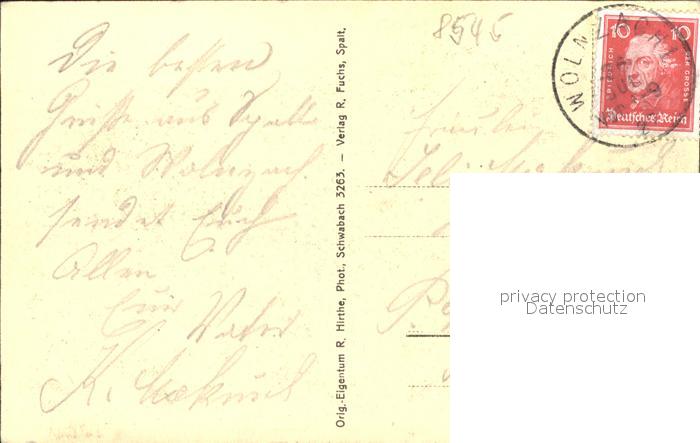 Die besten
Grüße aus Spalt
und Wolnzach
sendet Euch
Allen
Euer
Vater
K.
8545
Orig.-Eigentum R. Hirthe, Phot., Schwabach 3263. — Verlag R. Fuchs, Spalt.
WOLNZACH
10 10
FRIEDRICH DER GROSSE
Deutsches Reich
Fräulein
privacy protection
Datenschutz